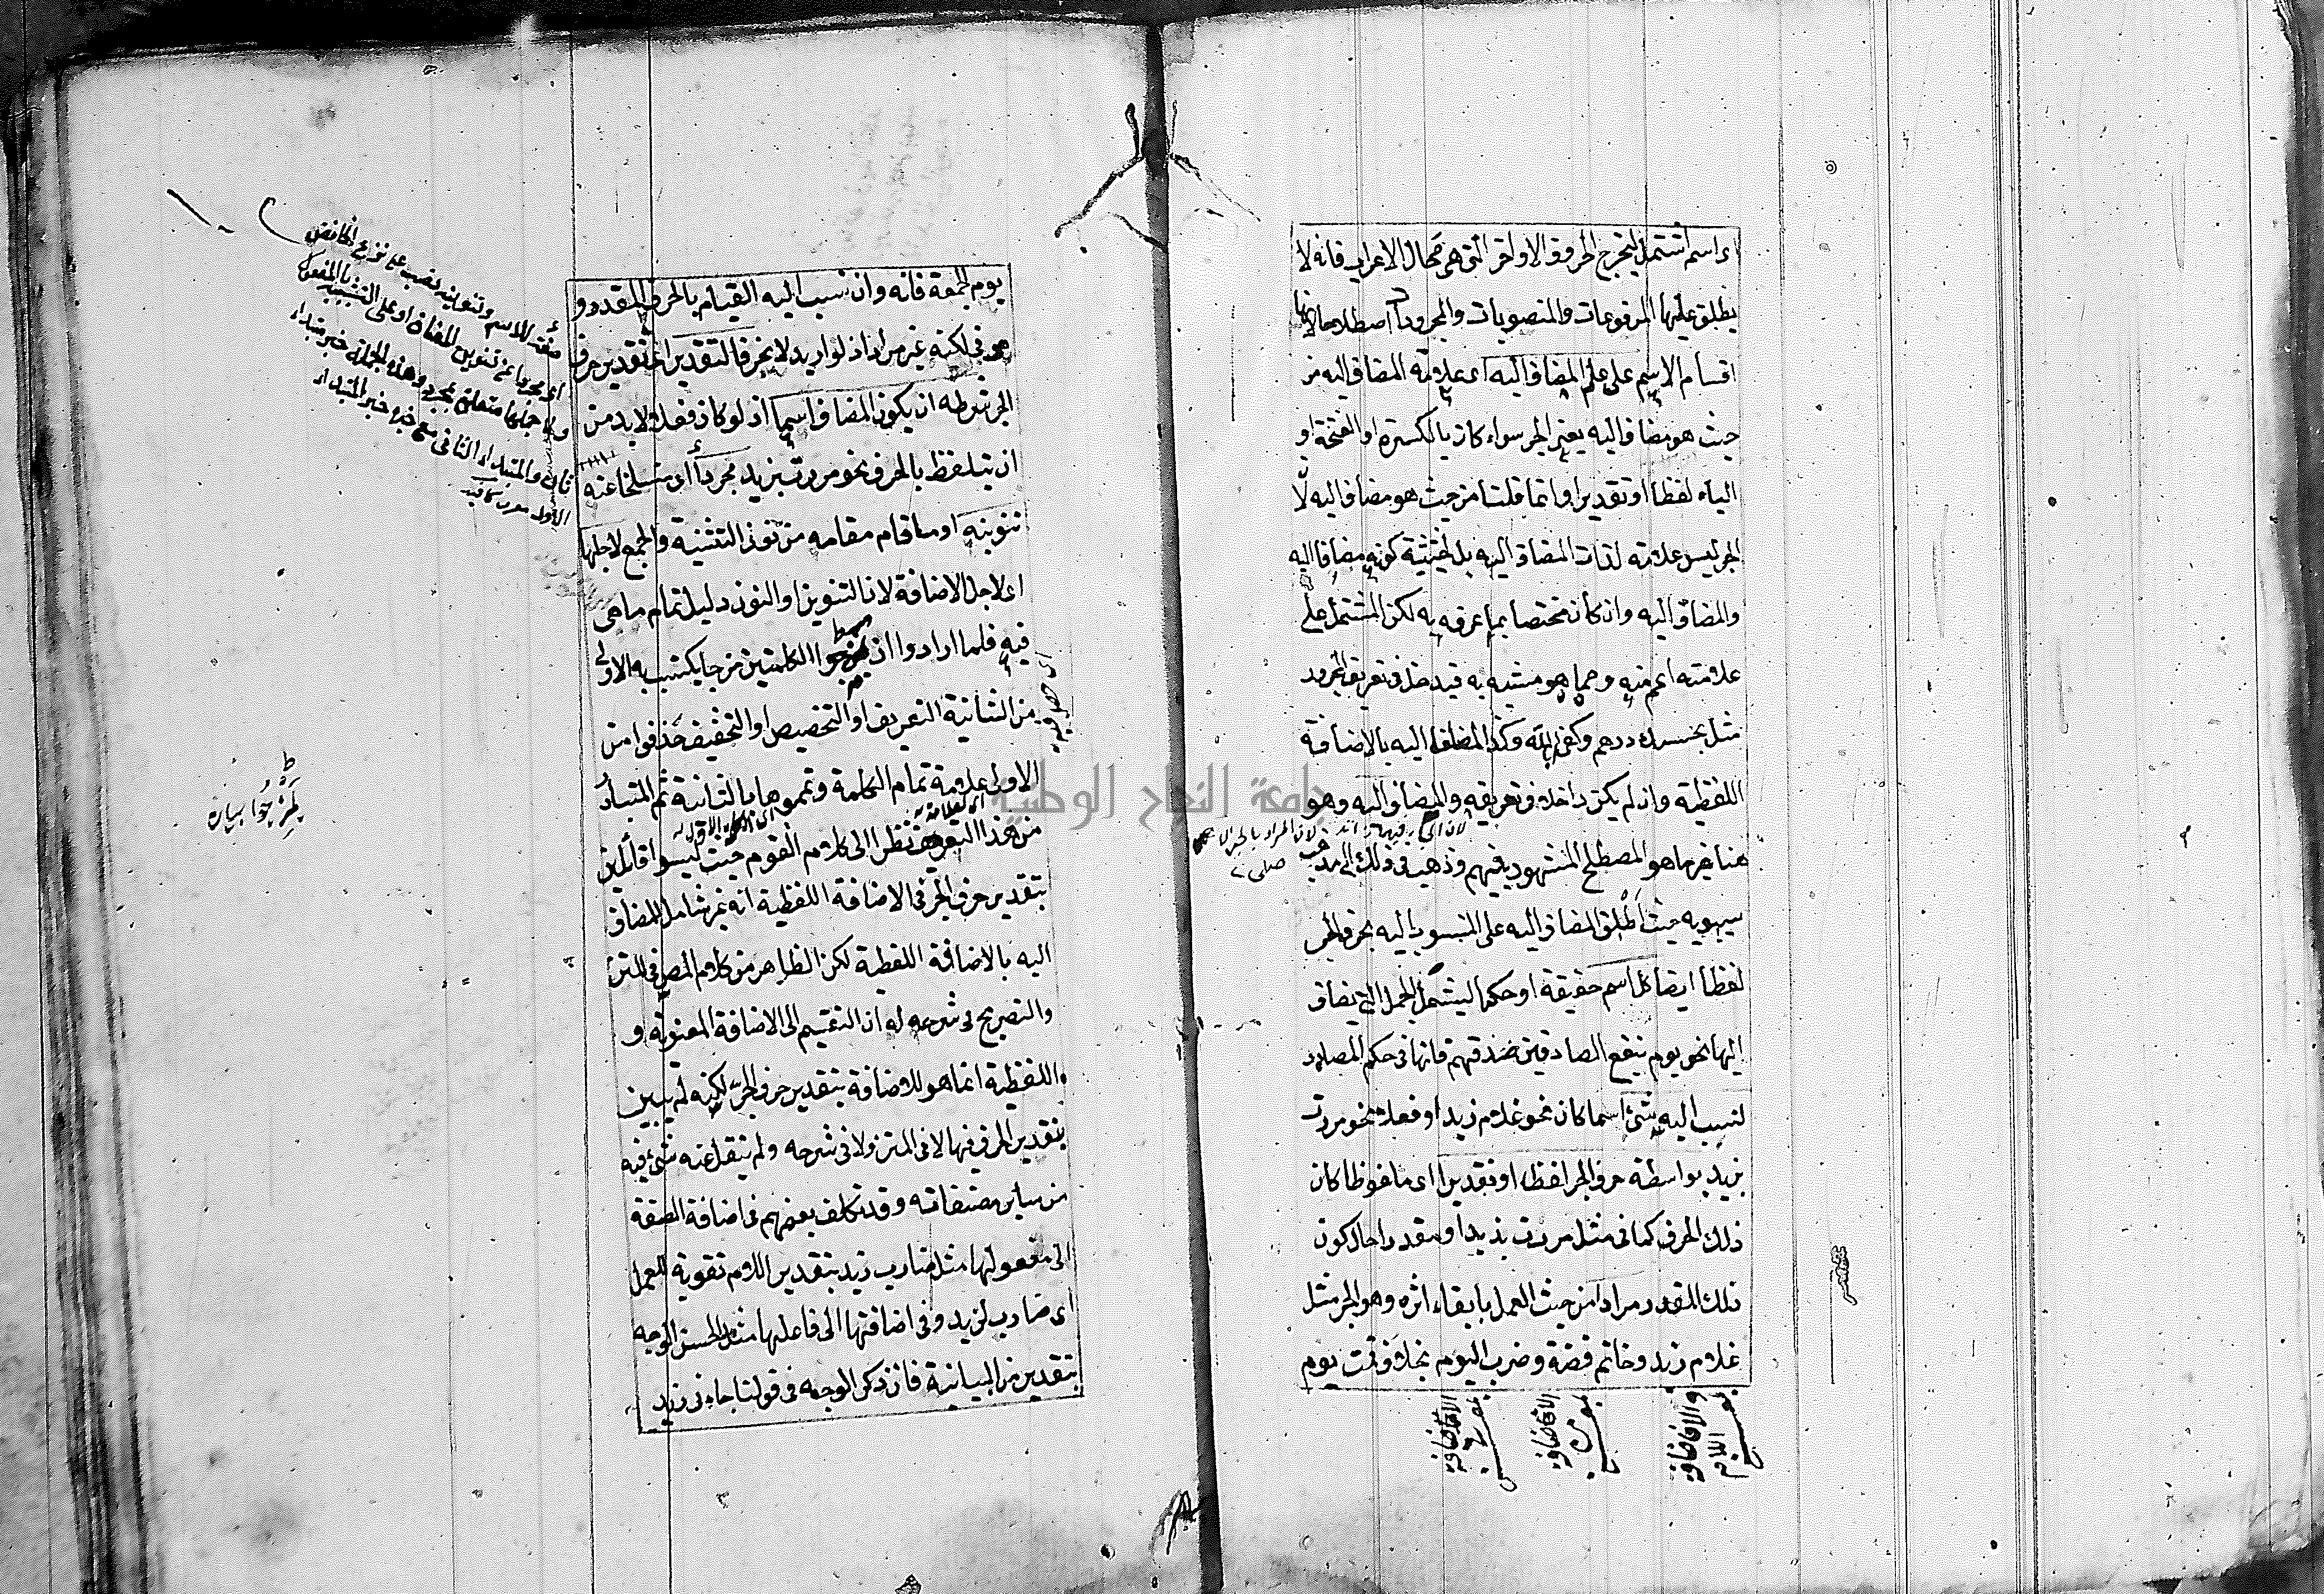 اى اسم اشتمل ليخرج الحروف الاواخر التى هى محال الاعراب فانه لا
يطلق عليها المرفوعات والمنصوبات والمجرورات اصطلاحا لانها
اقسام الاسم على علم المضاف اليه اى علامة المضاف اليه من
حيث هو مضاف اليه يعنى الجر سواء كان بالكسرة او الفتحة او
الياء لفظا او تقديرا وانما قلنا من حيث هو مضاف اليه لان
الجر ليس علامة لذات المضاف اليه بل لحيثية كونه مضافا اليه
والمضاف اليه وان كان مختصا بما عرفه به لكن المشتمل على
علامته اعم منه ومما هو مشبه به فيدخل فى تعريف المجرور
مثل بحسبك درهم وكفى بالله وكذا المضاف اليه بالاضافة
اللفظية وان لم يكن داخلا فى تعريفه والمضاف اليه وهو
هنا غير ما هو المصطلح المشهور بينهم وذهب فى ذلك الى مذهب
سيبويه حيث اطلق المضاف اليه على المنسوب اليه بحرف الجر
لفظا ايضا كل اسم حقيقة او حكما ليشمل الجمل التى يضاف
اليها نحو يوم ينفع الصادقين صدقهم فانها فى حكم المصادر
نسب اليه شئ اسما كان نحو غلام زيد او فعلا نحو مررت
بزيد بواسطة حرف الجر لفظا او تقديرا اى ملفوظا كان
ذلك الحرف كما فى مثل مررت بزيد او مقدرا حال كون
ذلك المقدر مرادا من حيث العمل بابقاء اثره وهو الجر مثل
غلام زيد وخاتم فضة وضرب اليوم بخلاف قمت يوم
يوم الجمعة فانه وان نسب اليه القيام بالحرف المقدر و
هو فى لكنه غير مراد اذ لو اريد لانجر فالتقدير اى تقدير حرف
الجر شرطه ان يكون المضاف اسما اذ لو كان فعلا لا بد من
ان يتلفظ بالحرف نحو مررت بزيد مجردا اى منسلخا عنه
تنوينه او ما قام مقامه من نون التثنية والجمع لاجلها
اى لاجل الاضافة لان التنوين او النون دليل تمام ما هى
فيه فلما ارادوا ان يمزجوا الكلمتين مزجا يكتسب به الاولى
من الثانية التعريف او التخصيص او التخفيف حذفوا من
الاولى علامة تمام الكلمة وتمموها بالثانية ثم المتبادر
من هذا التعريف نظرا الى كلام القوم حيث ليسوا قائلين
بتقدير حرف الجر فى الاضافة اللفظية انه غير شامل للمضاف
اليه بالاضافة اللفظية لكن الظاهر من كلام المص فى المتن
والتصريح فى شرحه له ان التقسيم الى الاضافة المعنوية و
واللفظية انما هو للاضافة بتقدير حرف الجر لكنه لم يبين
تقدير الحرف فيها لا فى المتن ولا فى شرحه ولم ينقل عنه شئ فيه
من سائر مصنفاته وقد تكلف بعضهم فى اضافة الصفة
الى مفعولها مثل ضارب زيد بتقدير اللام تقوية للعمل
اى ضارب لزيد وفى اضافتها الى فاعلها مثل الحسن الوجه
بتقدير من البيانية فان ذكر الوجه فى قولنا جاءنى زيد
جامعة النجاح الوطنية